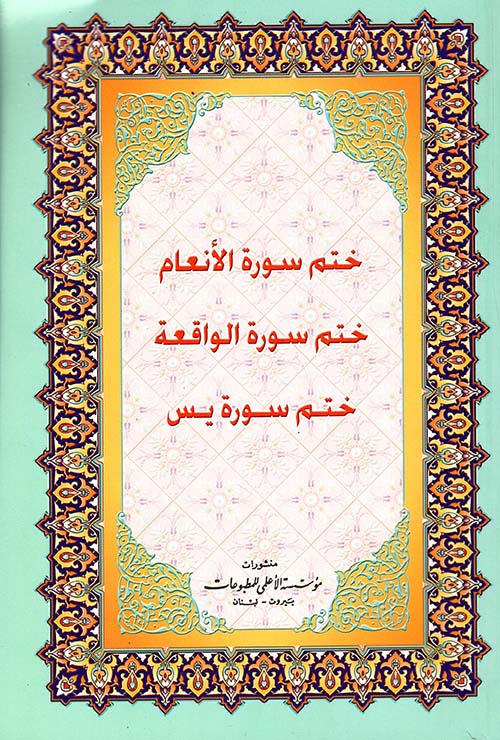 ختم سورة الأنعام
ختم سورة الواقعة
ختم سورة يس
منشورات
مؤسسة الأعلمي للمطبوعات
بيروت - لبنان